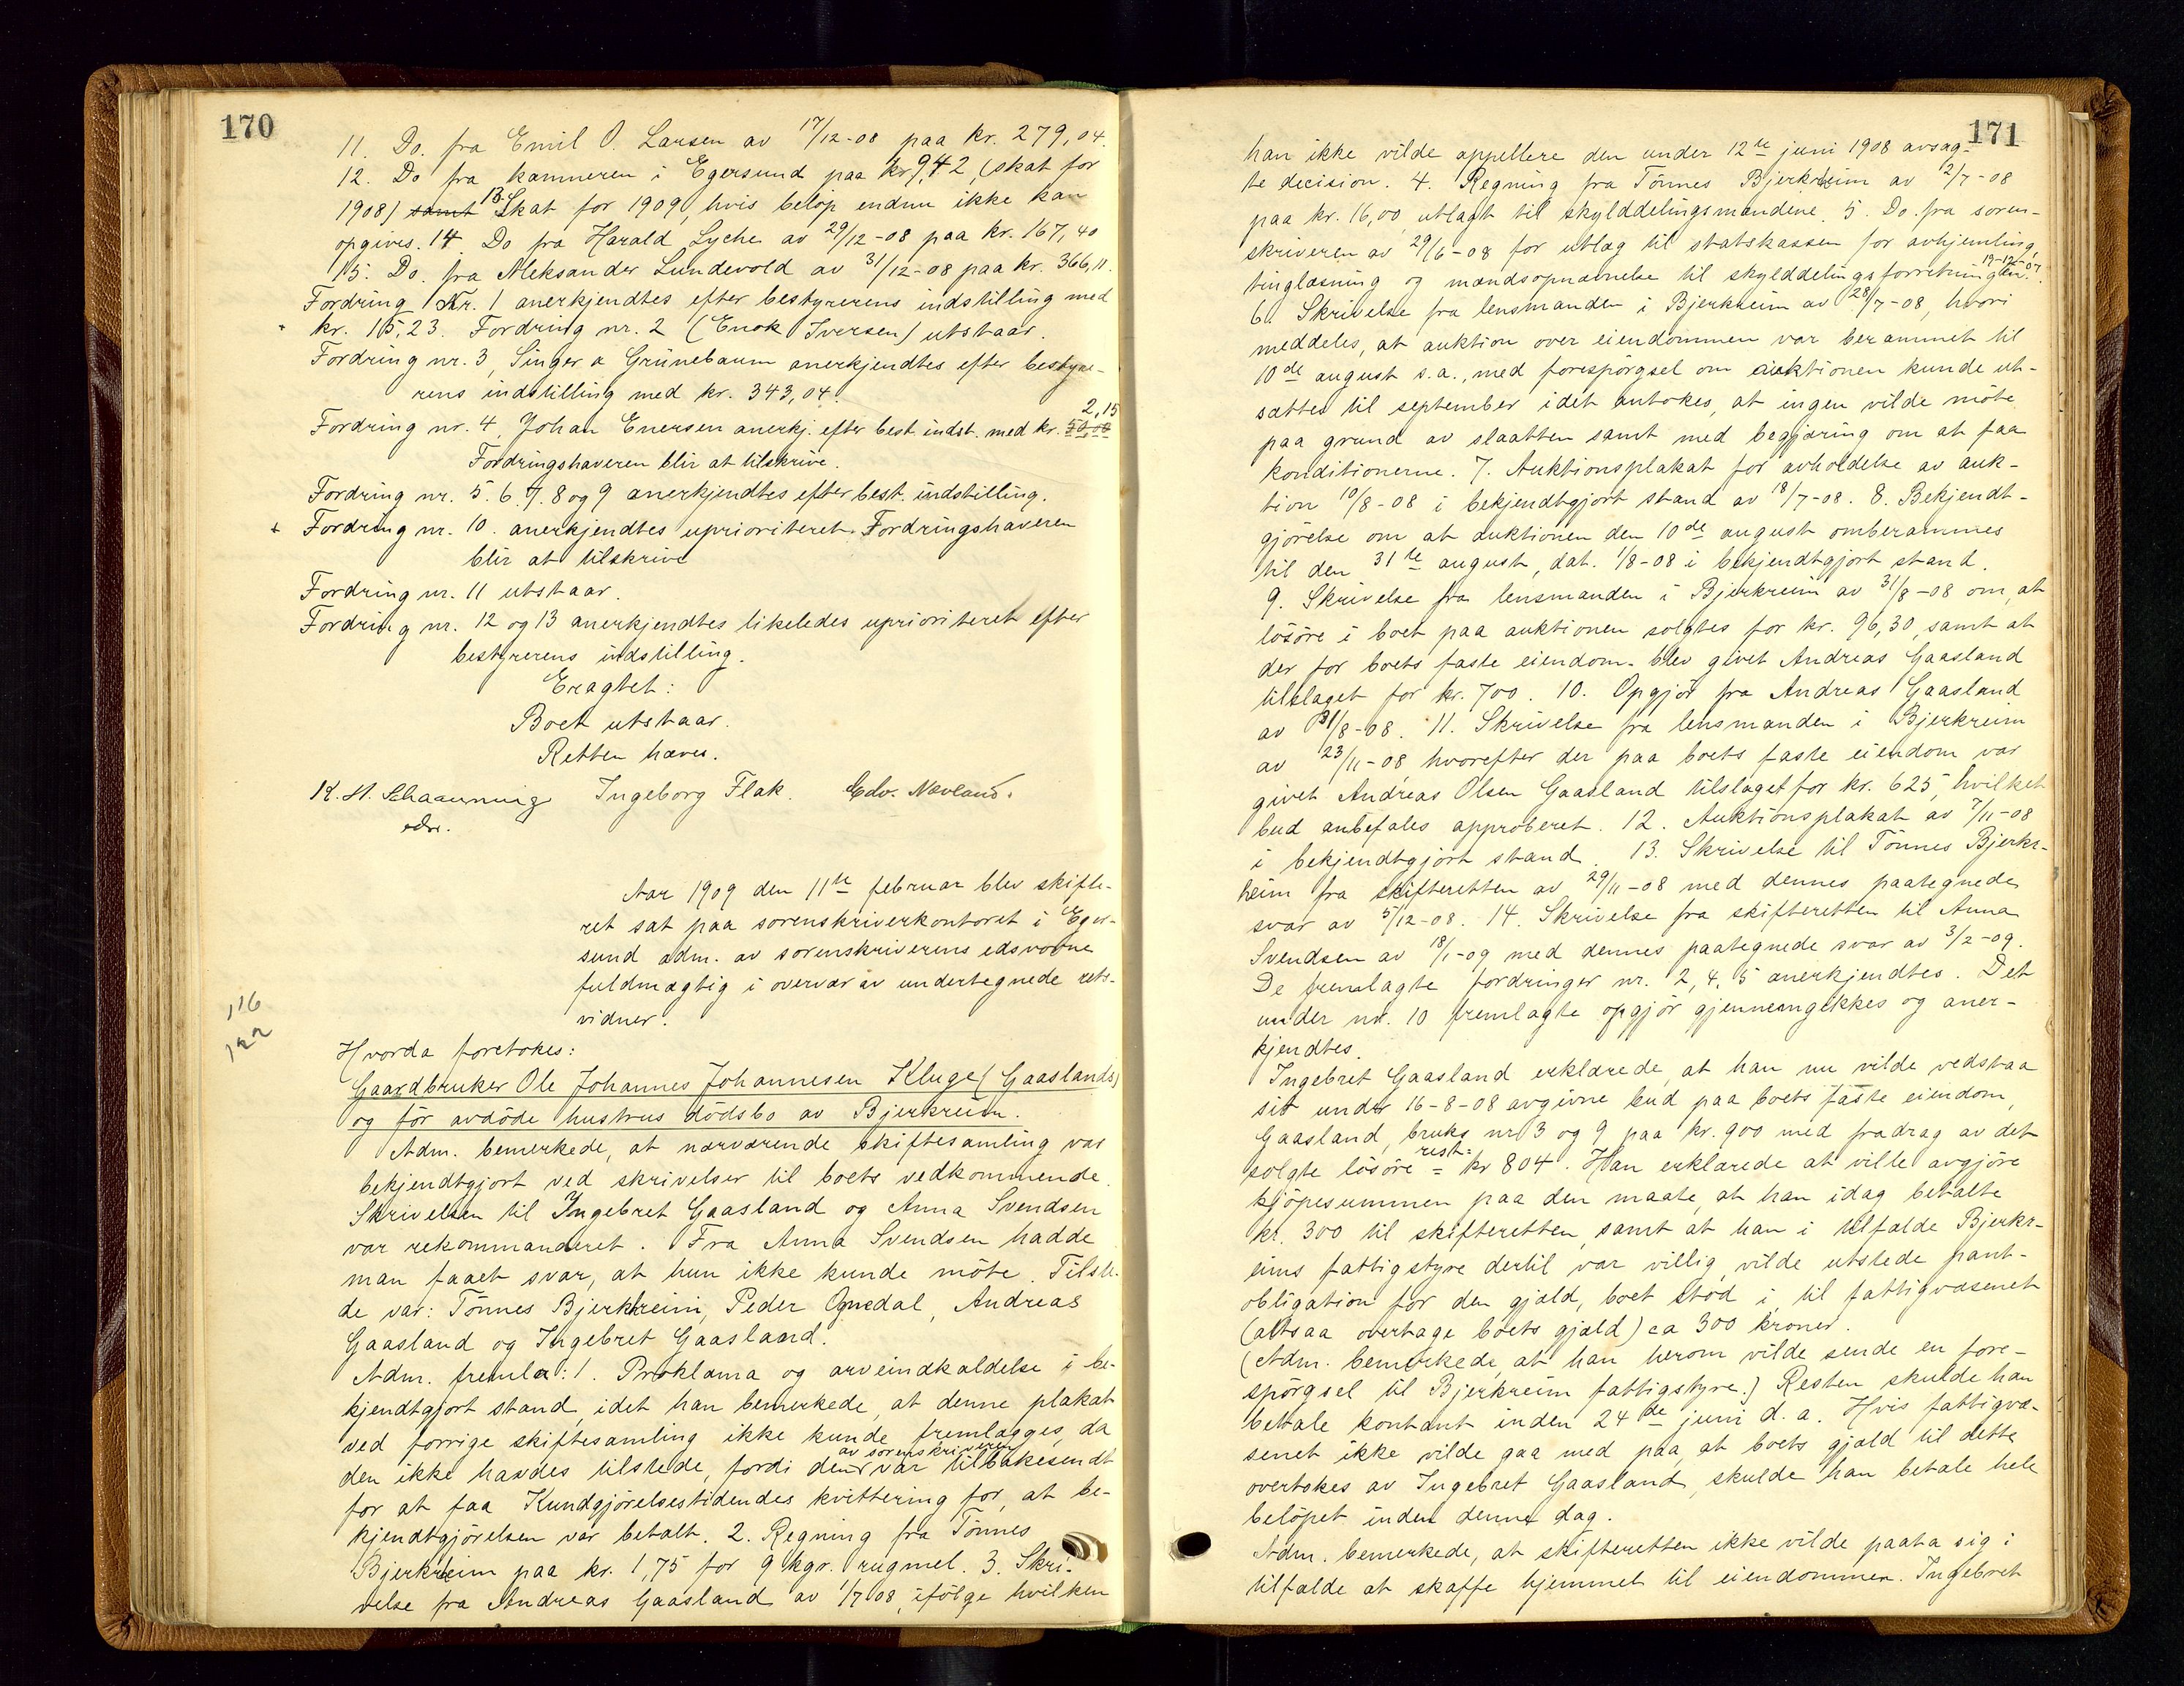 170
11. Do. fra Emil O. Larsen av 17/12-08 paa kr. 279,04.
12. Do fra kæmneren i Egersund paa kr 9,42, (skat for
1908) samt 13. Skat for 1909, hvis beløp endnu ikke kan
opgives. 14 Do fra Harald Lyche av 29/12-08 paa kr. 167,40
15. Do. fra Aleksander Lundevold av 31/12-08 paa kr. 366,11.
Fordring Nr. 1 anerkjendtes efter bestyrerens indstilling med
kr. 15,23. Fordring nr. 2 (Enok Iversen) utstaar.
Fordring nr. 3, Singer a Grünebaum anerkjendtes efter besty-
rens indstilling med kr. 343,04.
2,15
Fordring nr. 4 Johan Enersen anerkj. efter best. indst. med kr. 50.00
Fordringshaveren blir at tilskrive.
Fordring nr. 5. 6. 7. 8 og 9 anerkjendtes efter best. indstilling.
+ Fordring nr. 10. anerkjendtes uprioriteret. Fordringshaveren
blir at tilskrive
Fordring nr. 11 utstaar.
Fordring nr. 12 og 13 anerkjendtes likeledes uprioriteret efter
bestyrerens indstilling.
Eragtet:
Boet utstaar.
Retten hæves.
K. H. Schaanning Ingeborg Flak. Edv. Nevland.
edsv.
Aar 1909 den 11te februar blev skifte-
ret sat paa sorenskriverkontoret i Eger-
sund adm. av sorenskriverens edsvorne
fuldmægtig i overvær av undertegnede rets-
vidner.
116
122
Hvorda foretokes:
Gaardbruker Ole Johannes Johannesen Kluge (Gaaslands)
og før avdøde hustrus dødsbo av Bjerkreim.
Adm. bemerkede, at nærværende skiftesamling var
bekjendtgjort ved skrivelser til boets vedkommende.
Skrivelsen til Ingebret Gaasland og Anna Svendsen
var rekommanderet. Fra Anna Svendsen hadde
man faaet svar, at hun ikke kunde møte. Tilste-
de var: Tønnes Bjerkreim, Peder Ognedal, Andreas
Gaasland og Ingebret Gaasland.
Adm. fremla: 1. Proklama og arveindkaldelse i be-
kjendtgjort stand, idet han bemerkede, at denne plakat
ved forrige skiftesamling ikke kunde fremlægges, da
av sorenskriveren
den ikke havdes tilstede, fordi den var tilbakesendt
for at faa Kundgjørelsestidendes kvittering for, at be-
kjendtgjørelsen var betalt. 2. Regning fra Tønnes
Bjerkreim paa kr. 1,75 for 9 kgr. rugmel. 3. Skri-
velse fra Andreas Gaasland av 1/7 08, ifølge hvilken
171
han ikke vilde appellere den under 12te juni 1908 avsag-
te decision. 4. Regning fra Tønnes Bjerkreim av 2/7-08
paa kr. 16,00, utlagt til skylddelingsmændene. 5. Do. fra soren-
skriveren av 29/6-08 for utlæg til statskassen for avhjemling,
19-12-07
tinglæsning og mændsopnævnelse til skylddelingsforretningen.
6. Skrivelse fra lensmanden i Bjerkreim av 28/7-08, hvori
meddeles, at auktion over eiendommen var berammet til
10de august s.a., med forespørgsel om auktionen kunde ut-
sættes til september idet antokes, at ingen vilde møte
paa grund av slaatten samt med begjæring om at faa
konditionerne. 7. Auktionsplakat for avholdelse av auk-
tion 10/8-08 i bekjendtgjort stand av 18/7-08. 8. Bekjendt-
gjørelse om at auktionen den 10de august omberammes
til den 31te august, dat. 1/8-08 i bekjendtgjort stand.
9. Skrivelse fra lensmanden i Bjerkreim av 31/8-08 om, at
løsøre i boet paa auktionen solgtes for kr. 96,30, samt at
der for boets faste eiendom blev givet Andreas Gaasland
tilslaget for kr. 700. 10. Opgjør fra Andreas Gaasland
av 31/8-08. 11. Skrivelse fra lensmanden i Bjerkreim
av 23/11-08 hvorefter der paa boets faste eiendom var
givet Andreas Olsen Gaasland tilslaget for kr. 625, hvilket
bud anbefales approberet. 12. Auktionsplakat av 7/11-08
i bekjendtgjort stand. 13. Skrivelse til Tønnes Bjerkr-
heim fra skifteretten av 29/11-08 med dennes paategnede
svar av 5/12-08. 14. Skrivelse fra skifteretten til Anna
Svendsen av 18/1-09 med dennes paategnede svar av 3/2-09.
De fremlagte fordringer nr. 2, 4, 5 anerkjendtes. Det
under nr. 10 fremlagte opgjør gjennemgikkes og aner-
kjendtes.
Ingebret Gaasland erklærede, at han nu vilde vedstaa
sit under 16-8-08 avgivne bud paa boets faste eiendom,
Gaasland, bruks nr 3 og 9 paa kr. 900 med fradrag av det
rest:
solgte løsøre = kr 804. Han erklærede at ville avgjøre
kjøpesummen paa den maate, at han idag betalte
kr. 300 til skifteretten, samt at han i tilfælde Bjerkr-
eims fattigstyre dertil var villig, vilde utstede pant-
obligation for den gjæld, boet stod i til fattigvæsenet
(altsaa overtage boets gjæld) ca 300 kroner.
(Adm. bemerkede, at han herom vilde sende en fore-
spørgsel til Bjerkreim fattigstyre.) Resten skulde han
betale kontant inden 24de juni d. a. Hvis fattigvæ-
senet ikke vilde gaa med paa, at boets gjæld til dette
overtokes av Ingebret Gaasland, skulde han betale hele
beløpet inden denne dag.
Adm. bemerkede, at skifteretten ikke vilde paata sig i
tilfælde at skaffe hjemmel til eiendommen. Ingebret